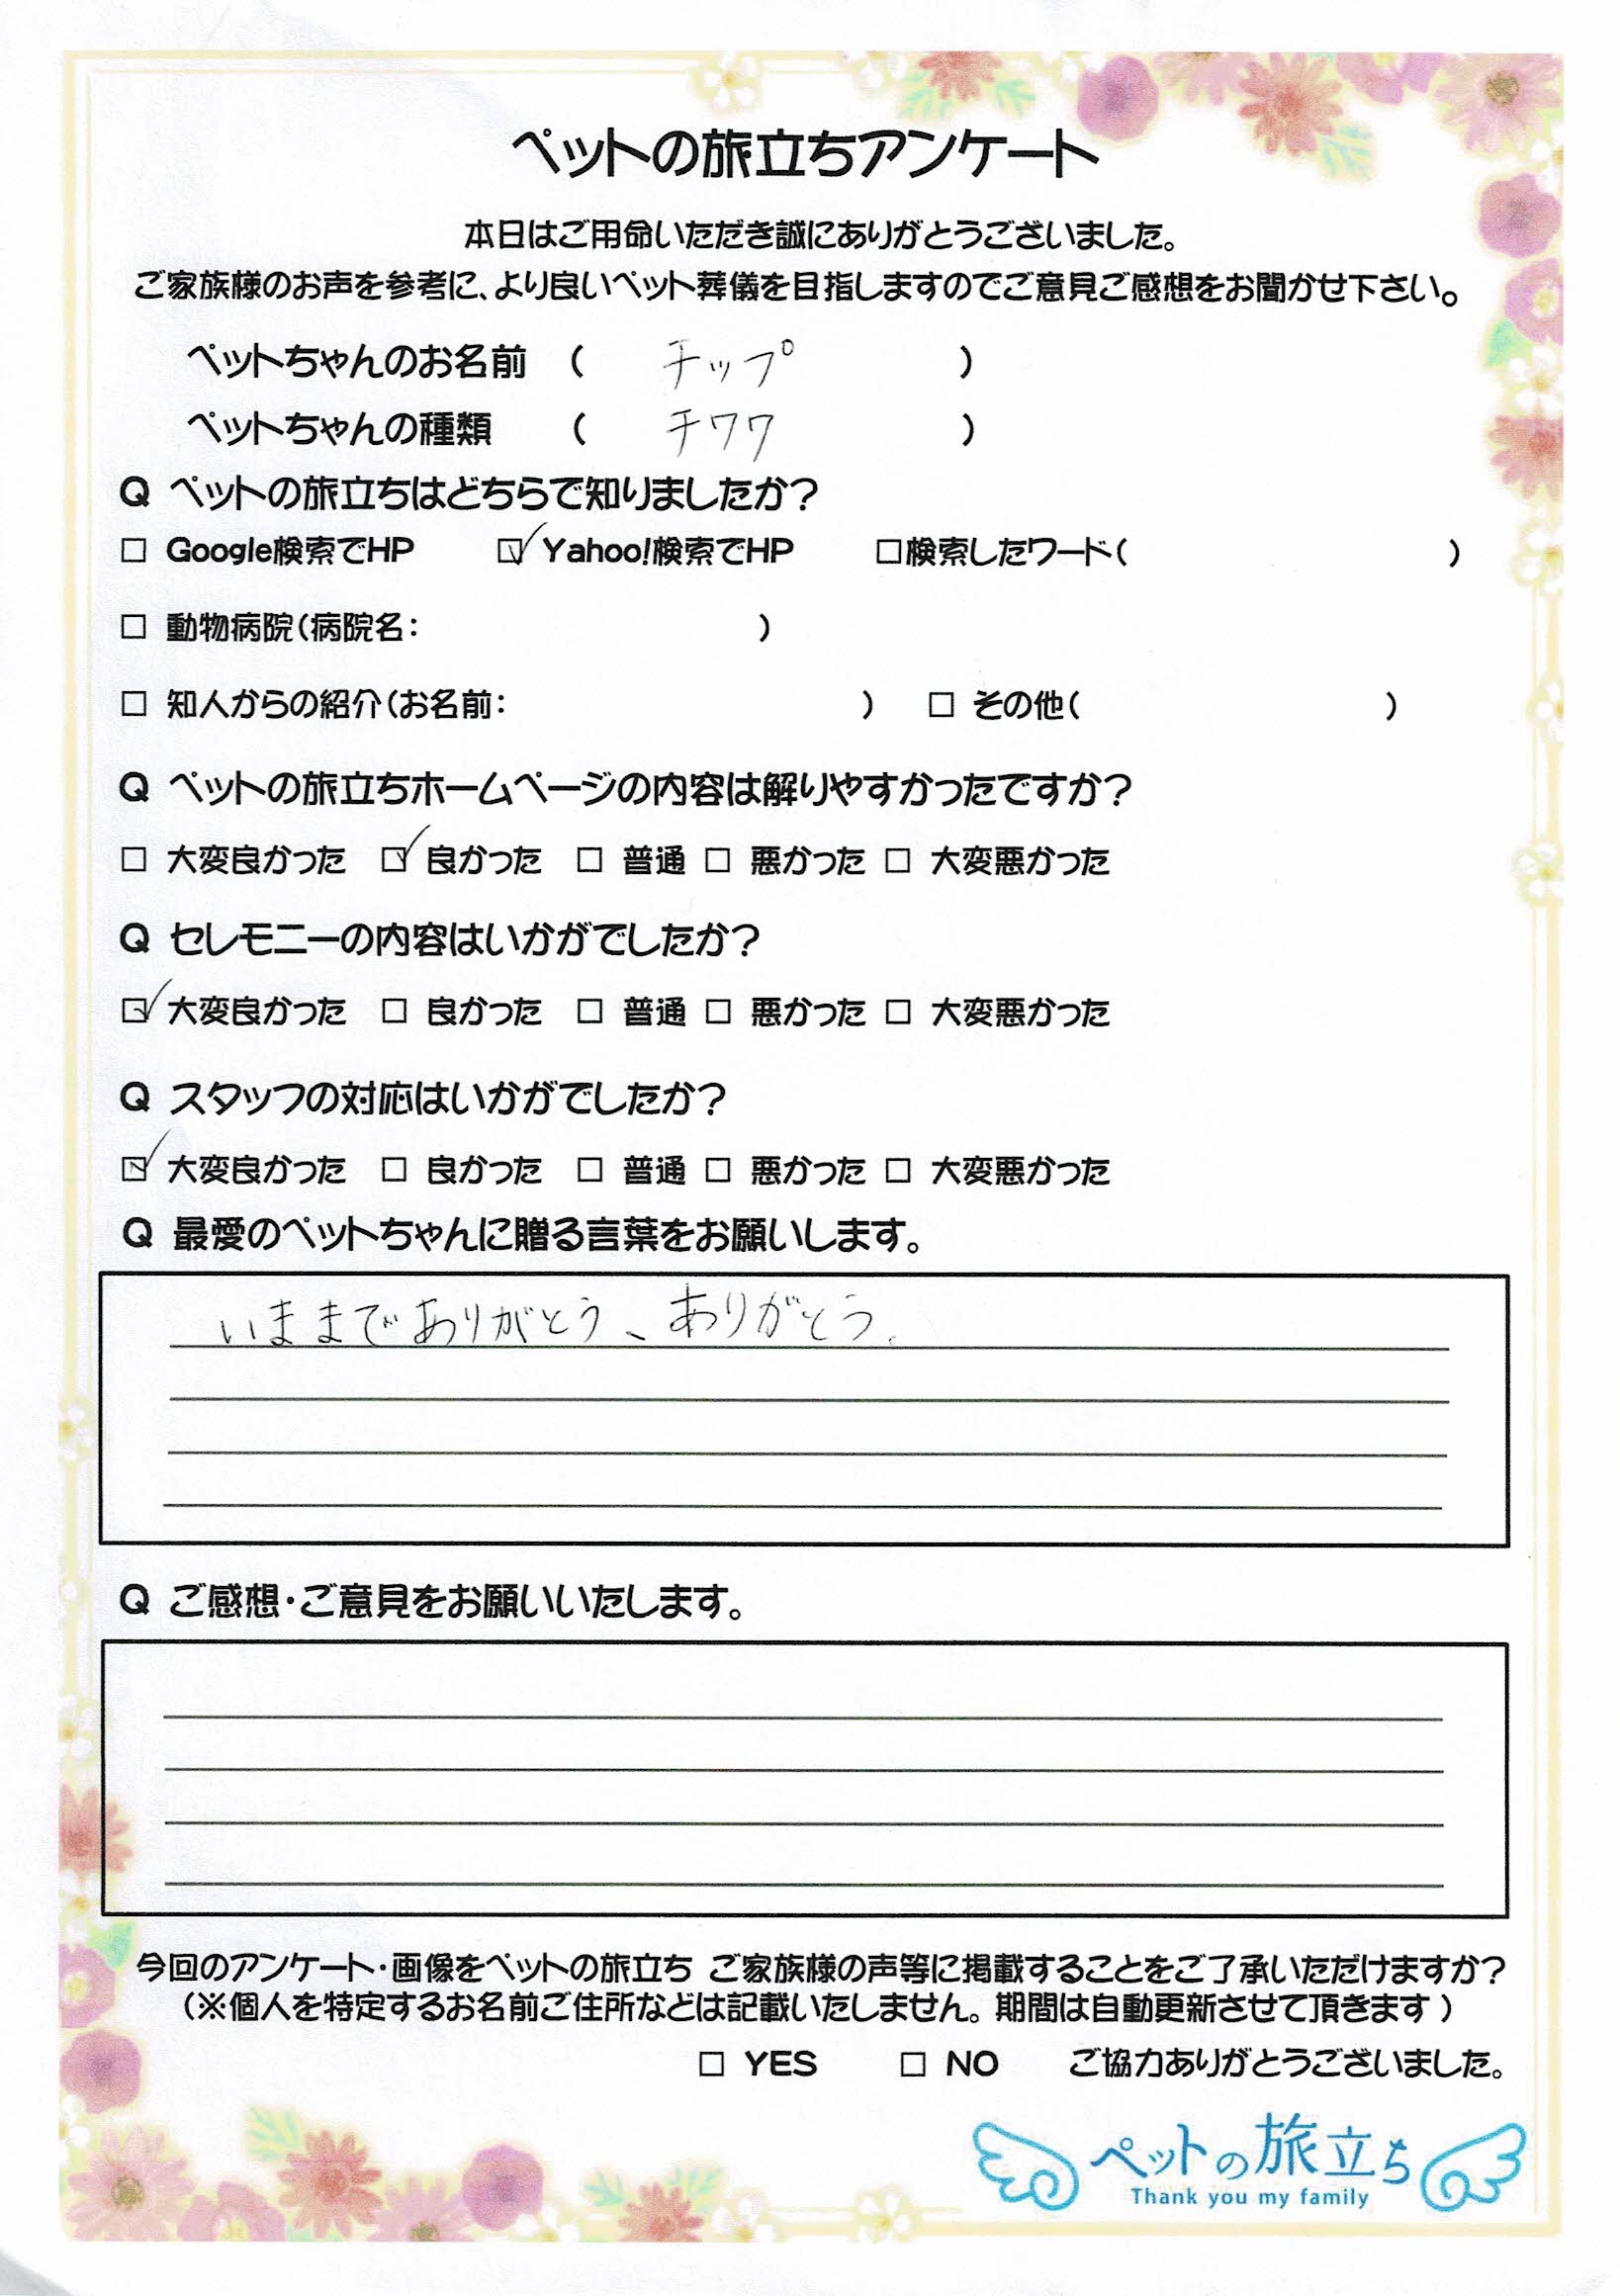 ペットの旅立ちアンケート
本日はご用命いただき誠にありがとうございました。
ご家族様のお声を参考に、より良いペット葬儀を目指しますのでご意見ご感想をお聞かせ下さい。
ペットちゃんのお名前 ( チップ )
ペットちゃんの種類 ( チワワ )
Q ペットの旅立ちはどちらで知りましたか?
□ Google検索でHP ☑ Yahoo!検索でHP □検索したワード( )
□ 動物病院(病院名: )
□ 知人からの紹介(お名前: ) □ その他( )
Q ペットの旅立ちホームページの内容は解りやすかったですか?
□ 大変良かった ☑ 良かった □ 普通 □ 悪かった □ 大変悪かった
Q セレモニーの内容はいかがでしたか?
☑ 大変良かった □ 良かった □ 普通 □ 悪かった □ 大変悪かった
Q スタッフの対応はいかがでしたか?
☑ 大変良かった □ 良かった □ 普通 □ 悪かった □ 大変悪かった
Q 最愛のペットちゃんに贈る言葉をお願いします。
いままでありがとう、ありがとう。
Q ご感想・ご意見をお願いいたします。
今回のアンケート・画像をペットの旅立ち ご家族様の声等に掲載することをご了承いただけますか?
(※個人を特定するお名前ご住所などは記載いたしません。期間は自動更新させて頂きます)
□ YES □ NO ご協力ありがとうございました。
ペットの旅立ち
Thank you my family